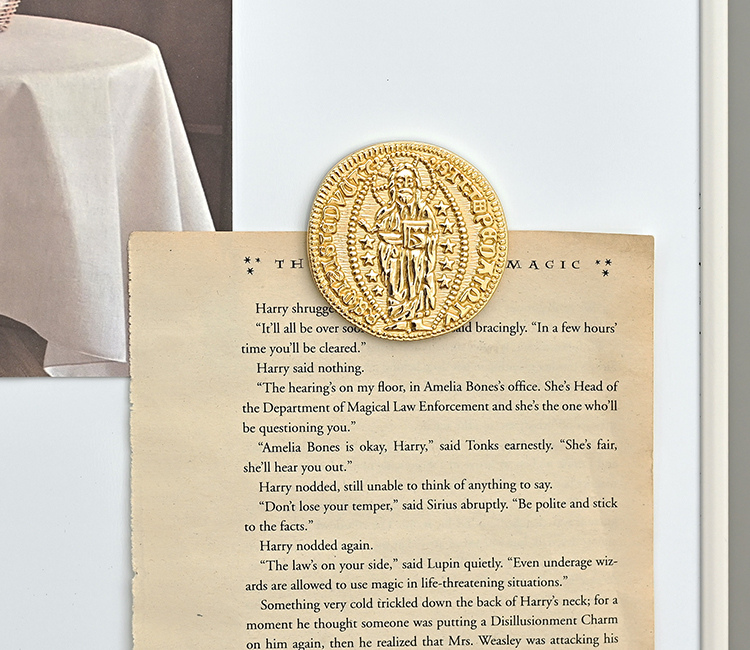 TH MAGIC
Harry shrugge
“It’ll all be over soo aid bracingly. “In a few hours’
time you’ll be cleared.”
Harry said nothing.
“The hearing’s on my floor, in Amelia Bones’s office. She’s Head of
the Department of Magical Law Enforcement and she’s the one who’ll
be questioning you.”
“Amelia Bones is okay, Harry,” said Tonks earnestly. “She’s fair,
she’ll hear you out.”
Harry nodded, still unable to think of anything to say.
“Don’t lose your temper,” said Sirius abruptly. “Be polite and stick
to the facts.”
Harry nodded again.
“The law’s on your side,” said Lupin quietly. “Even underage wiz-
ards are allowed to use magic in life-threatening situations.”
Something very cold trickled down the back of Harry’s neck; for a
moment he thought someone was putting a Disillusionment Charm
on him again, then he realized that Mrs. Weasley was attacking his